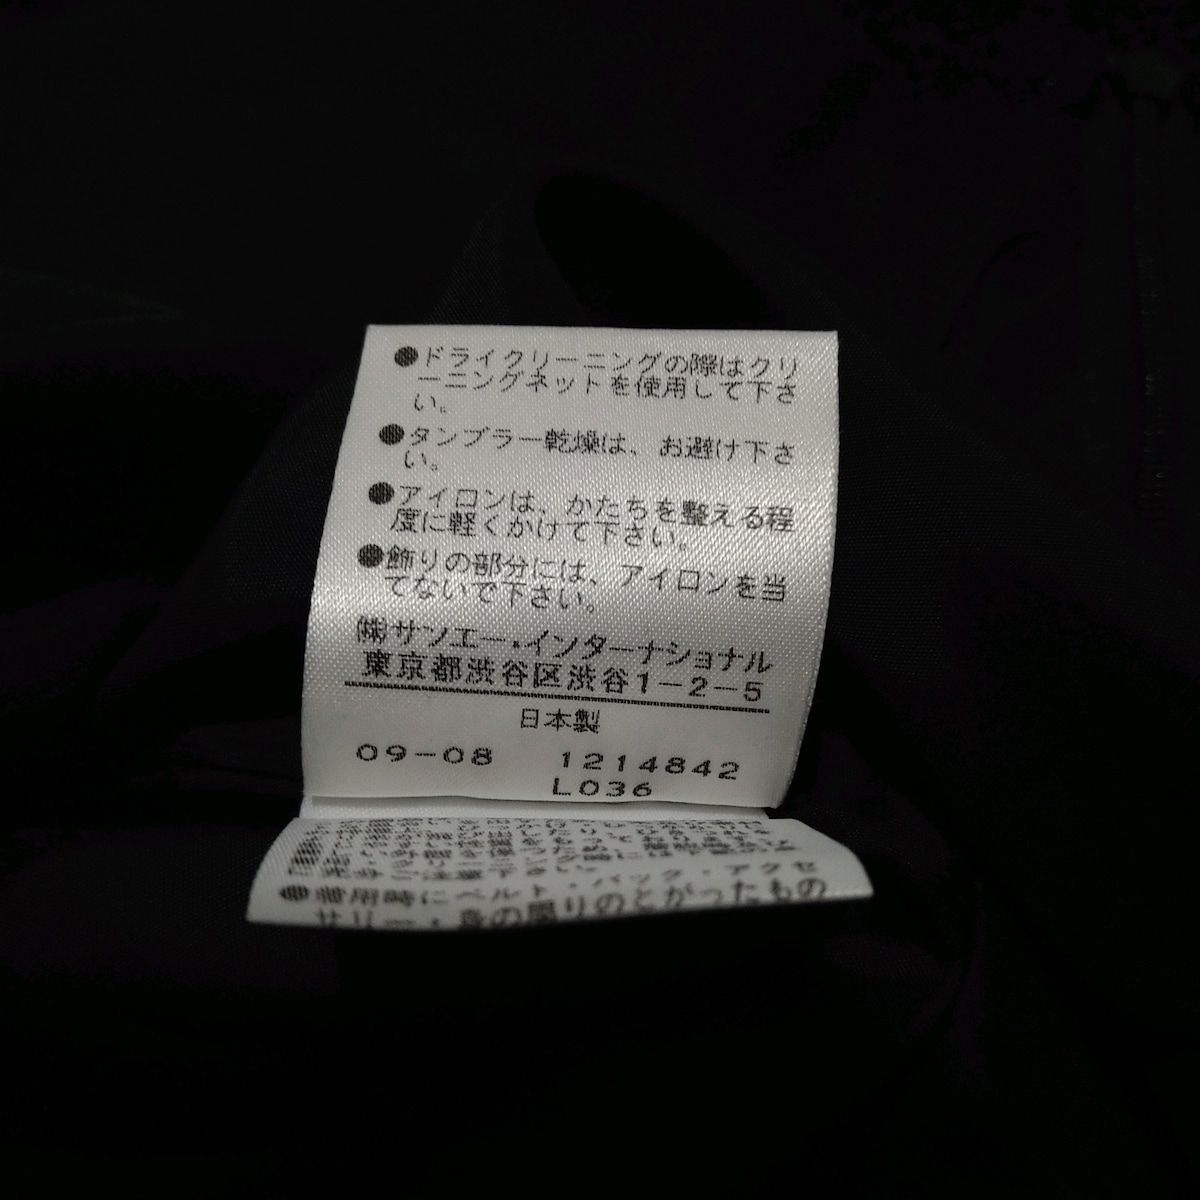 ●ドライクリーニングの際はクリ
ーニングネットを使用して下さ
い。
●タンブラー乾燥は、お避け下さ
い。
●アイロンは、かたちを整える程
度に軽くかけて下さい。
●飾りの部分には、アイロンを当
てないで下さい。
㈱サンエー・インターナショナル
東京都渋谷区渋谷1-2-5
日本製
09-08 1214842
L036
●着用時にベルト・バック・アクセ
サリー・身の周りのとがったもの